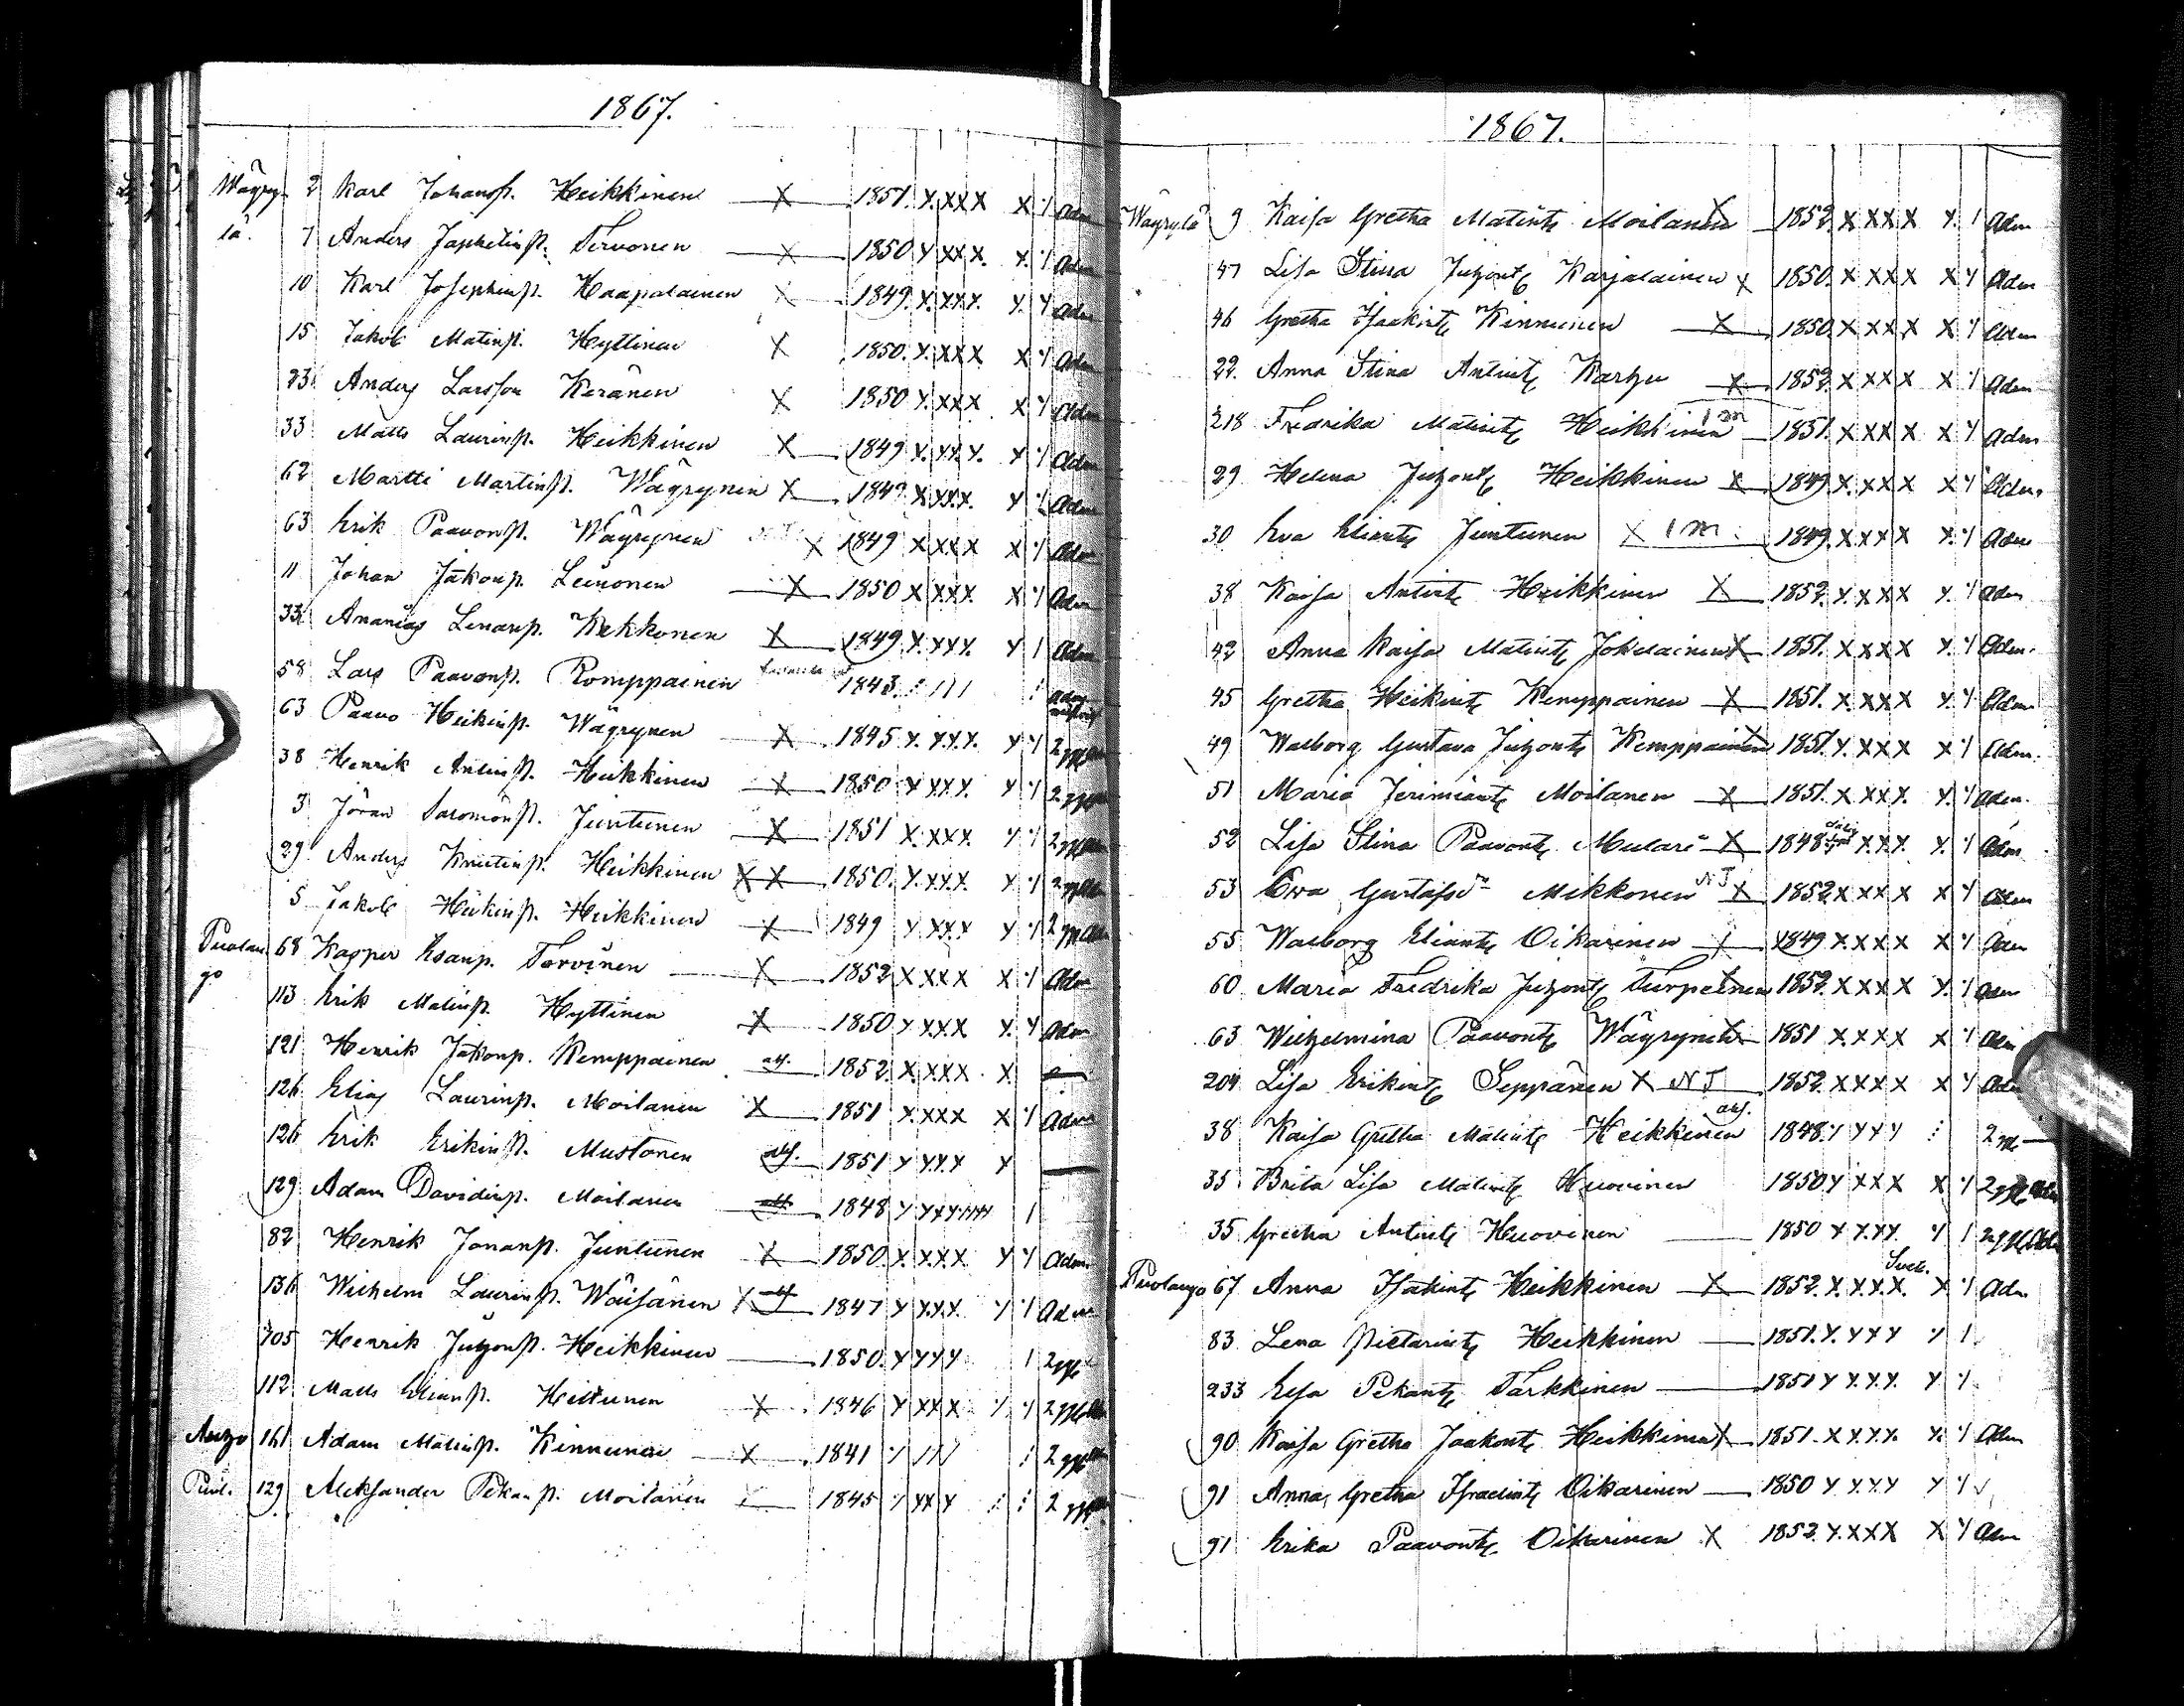 1867.
Wäyry- 2 Karl Johansp. Heikkinen X 1851. X. XXX X Y Adm
lä. 7 Anders Japhetinp. Tervonen X 1850 Y XXX. X. Y Adm
10 Karl Josephinp. Haapalainen X 1849. X. XXX. Y. Y Adm
15 Jakob Matinp. Hyttinen X 1850. X. XXX X Y Adm
23 Anders Larsson Keränen X 1850 Y. XXX X Y Adm
33 Matts Laurinp. Heikkinen X 1849 X. YX. Y. X Y Adm
62 Martti Martinp. Wäyrynen X 1849. X XXX. Y Adm
63 Erik Paavonp. Wäyrynen X 1849 X XXX X Y Adm
11 Johan Jakonp. Leinonen X 1850 X XXX. X Y Adm
33 Ananias Lenanp. Kekkonen X 1849. X. XXX. Y 1 Adm
58 Lars Paavonp. Romppainen 1843.
63 Paavo Heikinp. Wäyrynen X 1845 Y. YYY. Y Y 2
38 Henrik Antinp. Heikkinen X 1850 Y YXX. Y Y 2
3 Jöran Salomonp. Juntunen X 1851 X. XXX. Y Y 2
29 Anders Knutinp. Heikkinen X X 1850. Y. XXX. Y Y 2
5 Jakob Heikinp. Heikkinen X 1849 Y XXX Y Y 2
Puolan- 68 Kasper Esanp. Torvinen X 1852 X XXX X Y Adm
go
113 Erik Matinp. Hyttinen X 1850 Y XXX X. Y Adm
121 Henrik Jakonp. Kemppainen afs. 1852. X. XXX X.
126 Elias Laurinp. Moilanen X 1851 X. XXX X Y Adm
126 Erik Erikinp. Mustonen afs. 1851 Y YYX Y
129 Adam Davidinp. Moilanen 1848 Y 1
82 Henrik Jonanp. Juntunen X 1850. X. XXX Y Y Adm.
136 Wilhelm Laurinp. Wäisänen X 1847 Y XXX. Y Y Adm
105 Henrik Juhonp. Heikkinen 1850. Y YYY 1 2
112 Matts Elianp. Heikkinen X 1846 Y XXX Y Y 2
161 Adam Matinp. Kinnunen X 1841 2
Puol. 129 Aleksander Pekanp. Moilanen 1845 Y XXX 2
1867.
Wäyrylä 9 Kaisa Gretha Matint. Moilanen X 1852. X XXX X. 1 Adm
47 Lisa Stina Juhont. Karjalainen X 1850. X XXX X Y Adm
46 Gretha Isakint. Kinnunen X 1850. X XXX X Y Adm
22. Anna Stina Antint. Karhu X 1852. X XXX X Y Adm
218 Fredrika Matint. Heikkinen 1 m 1851. X XXX X Y Adm
29 Helena Juhont. Heikkinen X 1849. X. XXX X Y Adm.
30 Eva Eliant. Juntunen X 1 m. 1849. X XXX X. Y Adm
38 Kaisa Antint. Heikkinen X 1852. X. XXX Y. Y Adm
42 Anna Kaisa Matint. Jokelainen X 1851. X XXX Y. Y Adm.
45 Gretha Heikint. Kemppainen X 1851. X. XXX X. Y Adm
49 Walborg Gustava Juhont. Kemppainen X 1851. Y. XXX X Y Adm.
51 Maria Jeremiant. Moilanen X 1851. X. XXX. Y. Y Adm.
52 Lisa Stina Paavont. Mulari X 1848 XYX. Y. Y Adm
53 Ewa Gustafsdr Mikkonen NJ X 1852. X XXX X Y Adm
55 Walborg Eliant. Oikarinen X 1849. X XXX X Y Adm
60 Maria Fredrika Juhont. Turpeinen X 1852. X XXX X. Y Adm
63 Wilhelmina Paavont. Wäyrynen X 1851 X XXX X Y Adm
204 Lisa Erikint. Seppänen X NJ 1852. X XXX X Y Adm
38 Kaisa Gretha Matint. Heikkinen afs. 1848. Y YYY 2
35 Brita Lisa Matint. Huovinen 1850 Y XXX X Y 2
35 Gretha Antint. Huovinen 1850 Y XXY. Y 1 2
Puolango 67 Anna Isakint. Heikkinen X 1852. X. XXX. X Y Adm
83 Lena Pietarint. Heikkinen 1851. Y. YYY Y 1
233 Elsa Pekant. Tarkkinen 1851 Y YYY. Y Y
90 Kaisa Gretha Jaakont. Heikkinen X 1851. X YYY. Y. Y Adm
91 Anna Gretha Israelint. Oikarinen 1850 Y YYY Y Y
91 Erika Paavont. Oikarinen X 1852. Y. XXX X Y Adm